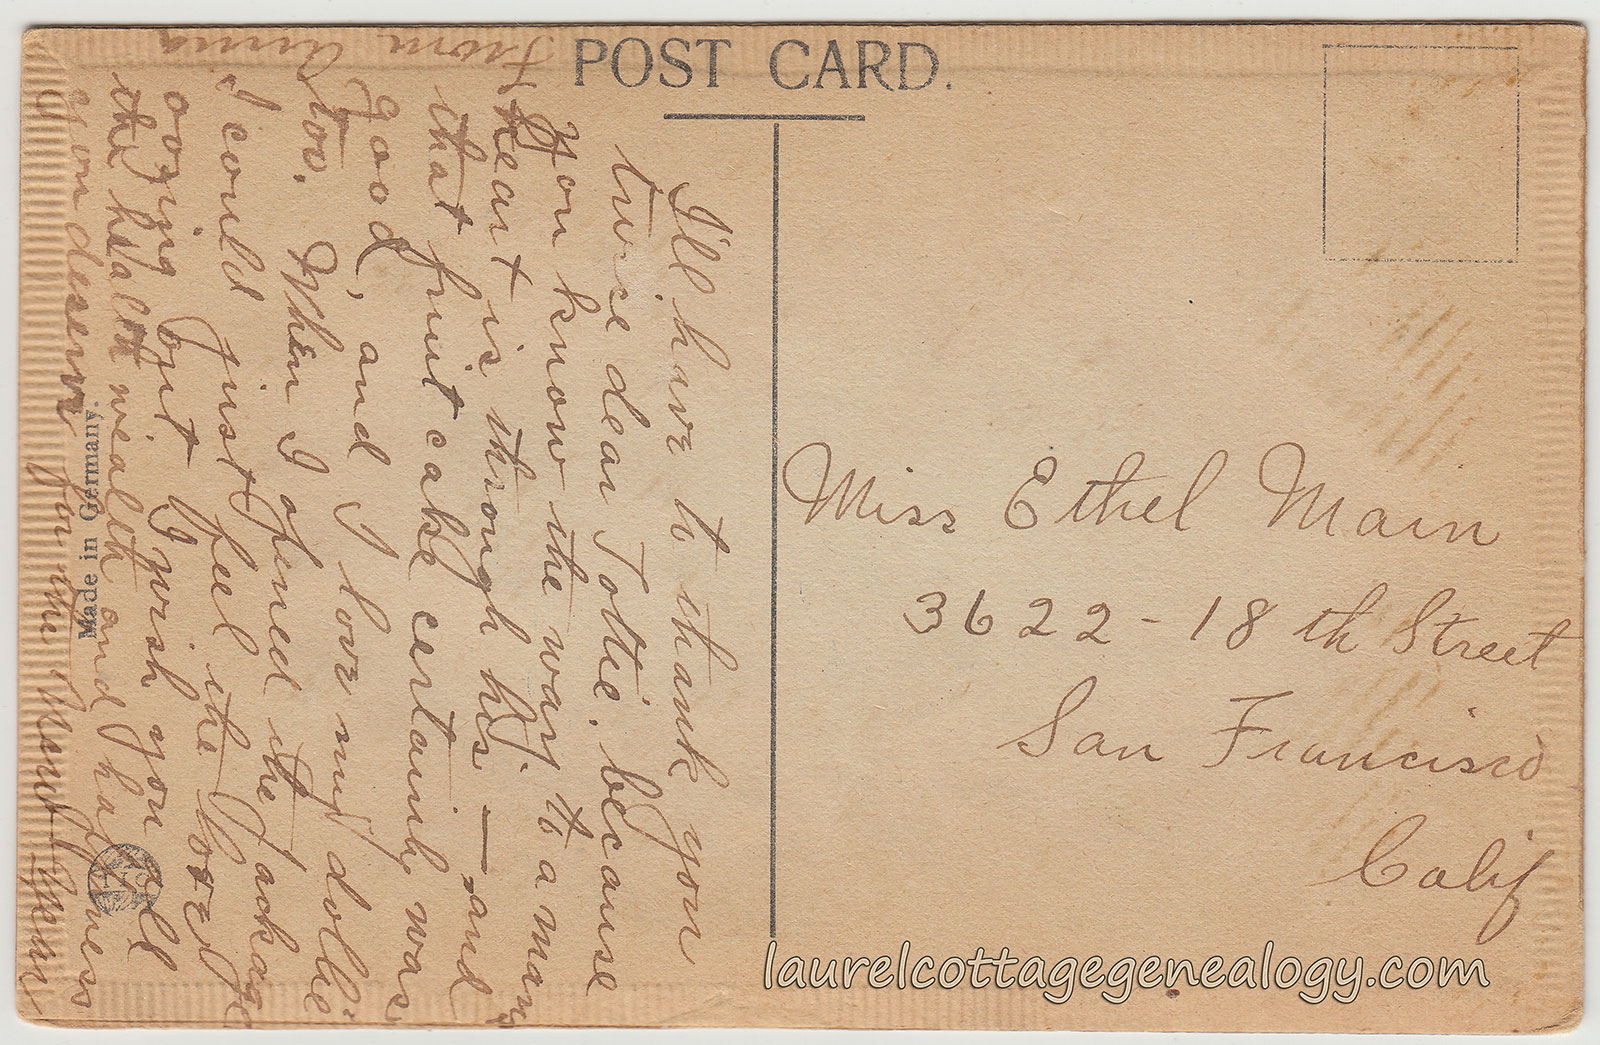 POST CARD.
I'll have to thank you
twice dear Tottie, because
you know the way to a mans
heart is through his — and
that fruit cake certainly was
good, and I love my dolbe
too. When I opened the package
I could just feel the love
oozing out I wish you all
the health wealth and happiness
you deserve for the New Year
From Anna
Made in Germany.
Miss Ethel Main
3622-18th Street
San Francisco
Calif
laurelcottagegenealogy.com